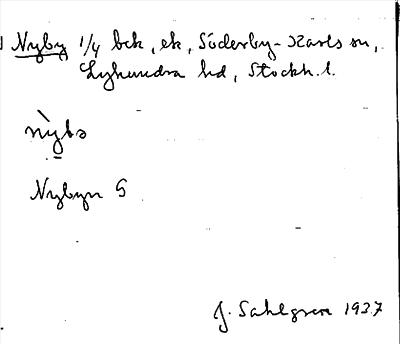 Nyby 1/4 bck, ek, Söderby-Karls sn,
Lyhundra hd, Stockh. l.
nỳbo
Nybyn G
J. Sahlgren 1937